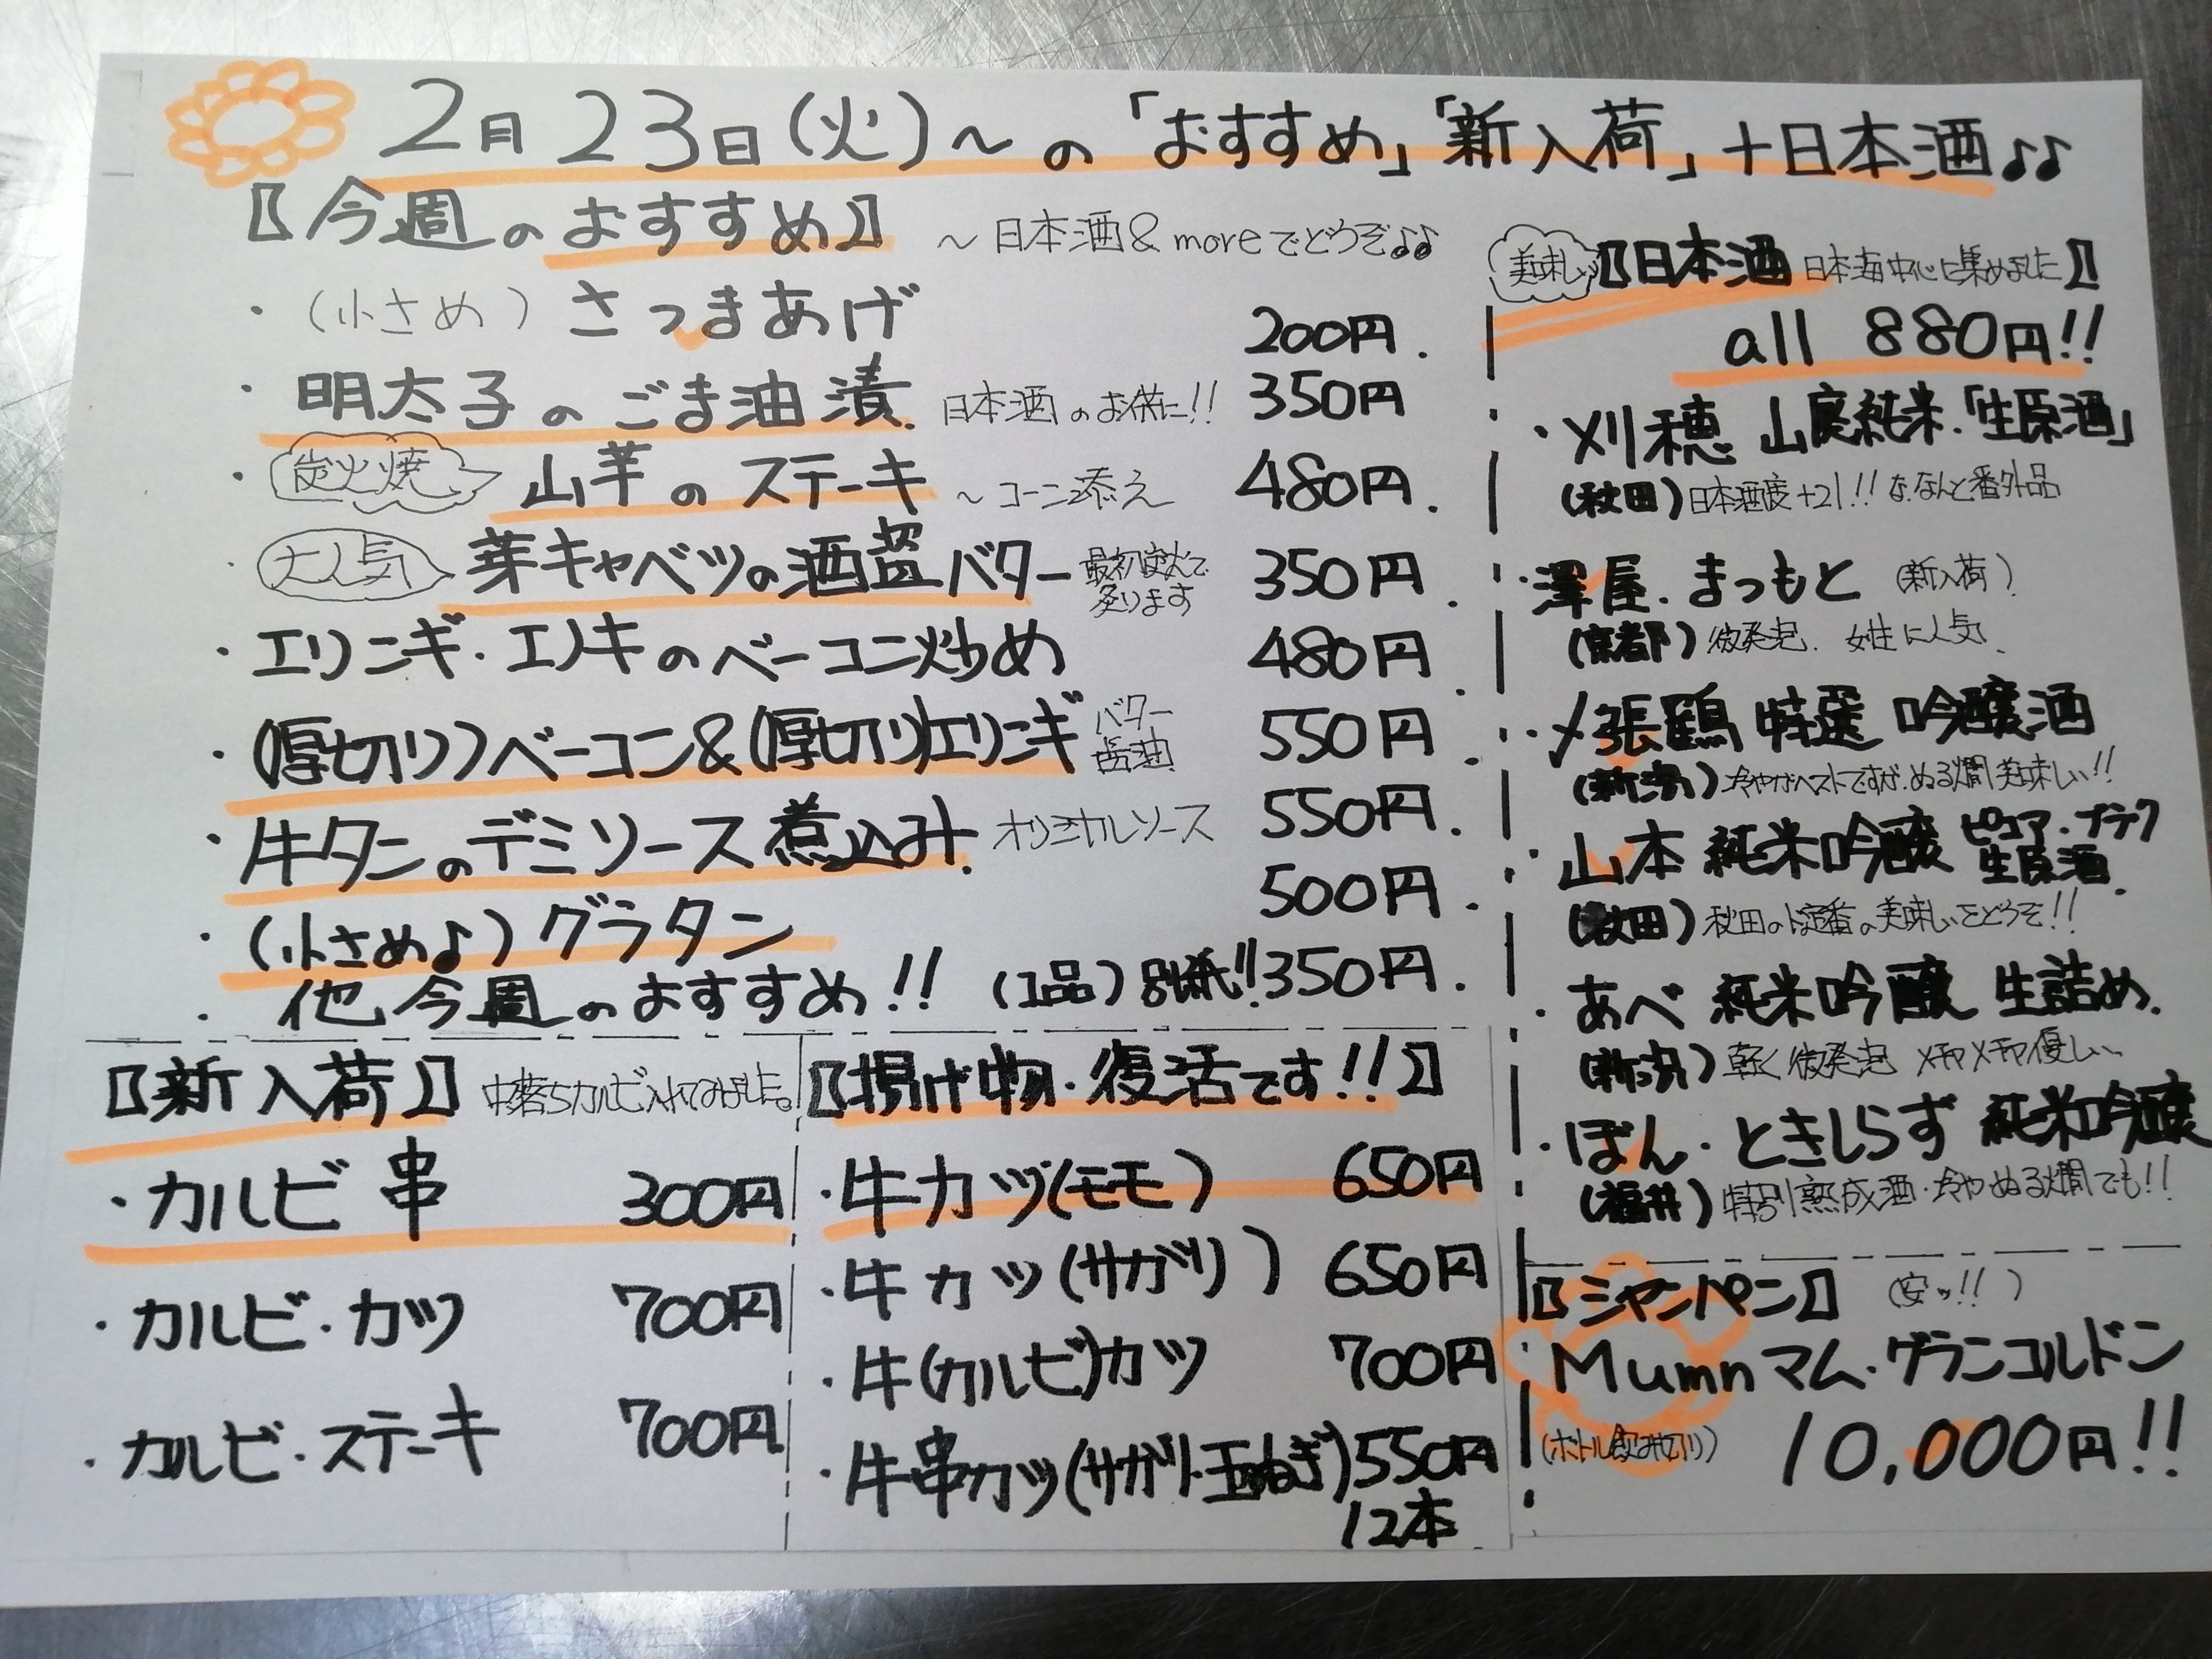 2月23日(火)~の「おすすめ」「新入荷」+日本酒♪♪
【今週のおすすめ】 ~日本酒&moreでどうぞ♪♪
・(小さめ)さつまあげ 200円.
・明太子のごま油漬. 日本酒のお供に!! 350円
・炭火焼 山芋のステーキ ~コーン添え 480円.
・大人気 芽キャベツの酒盗バター 最初炭火で 350円.
炙ります
・エリンギ・エノキのベーコン炒め 480円.
・(厚切り)ベーコン&(厚切り)エリンギ バター 550円.
醤油
・牛タンのデミソース煮込み. オリジナルソース 550円.
・(小さめ♪)グラタン 500円.
・他今週のおすすめ!! (1品)別紙!! 350円.
【新入荷】 中落ちカルビ入れてみました。
・カルビ串 300円
・カルビ・カツ 700円
・カルビ・ステーキ 700円
【揚げ物・復活です!!】
・牛カツ(モモ) 650円
・牛カツ(サガリ) 650円
・牛(カルビ)カツ 700円
・牛串カツ(サガリ・玉ねぎ)550円
12本
美味しい【日本酒 日本海中心に集めました】
all 880円!!
・刈穂 山廃純米.「生原酒」
(秋田)日本酒度+21!! な、なんと番外品
・澤屋.まつもと (新入荷)
(京都)微発泡. 女性に人気.
・〆張鶴 特選 吟醸酒
(新潟)冷やがベストですが、ぬる燗美味しい!!
・山本 純米吟醸 ピュア・ブラック
生原酒.
(秋田)秋田のド定番の美味しいをどうぞ!!
・あべ 純米吟醸 生詰め.
(新潟)軽く微発泡 メチャメチャ優しい、
・ぼん・ときしらず 純米吟醸
(福井)特別熟成酒・冷やぬる燗でも!!
【シャンパン】 (安ッ!!)
Mumn マム・グランコルドン
(ボトル飲み切り) 10,000円!!